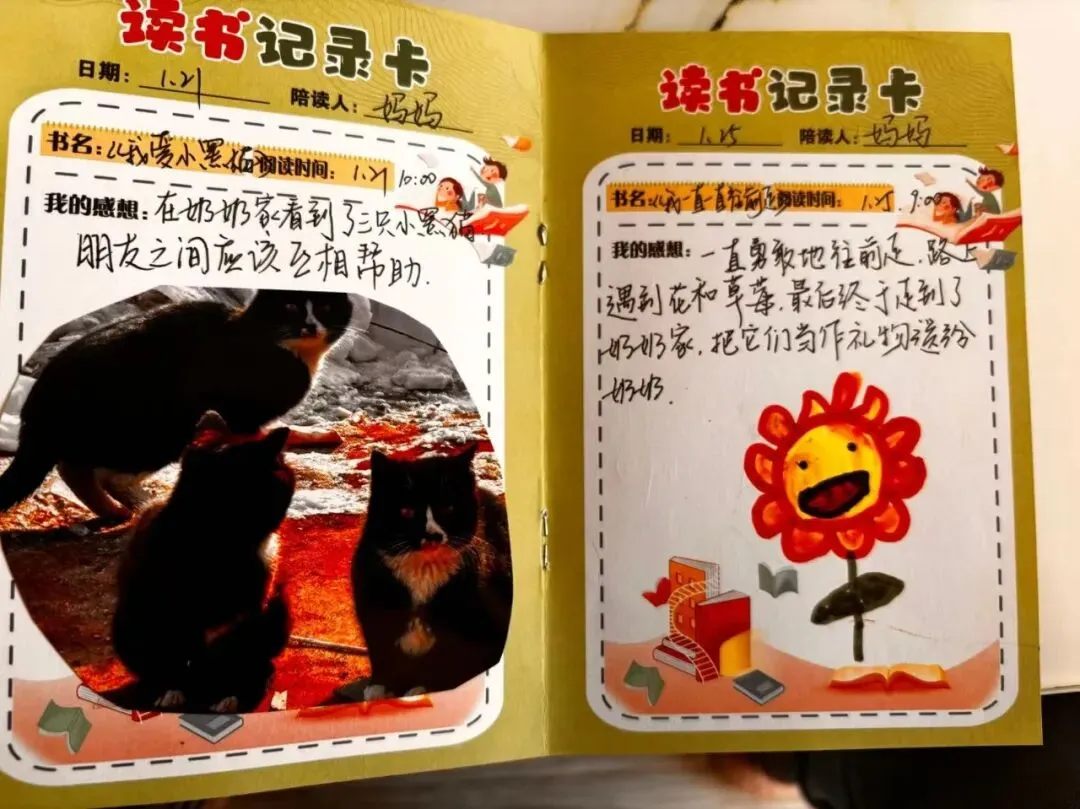 读书记录卡
日期：1.21 陪读人：妈妈
书名：《我爱小黑猫 阅读时间：1.21 10:00
我的感想：在奶奶家看到了三只小黑猫
朋友之间应该互相帮助.
读书记录卡
日期：1.25 陪读人：妈妈
书名：《我一直一直往前走 阅读时间：1.25. 9:00
我的感想：一直勇敢地往前走，路上
遇到花和草莓，最后终于走到了
奶奶家，把它们当作礼物送给
奶奶.